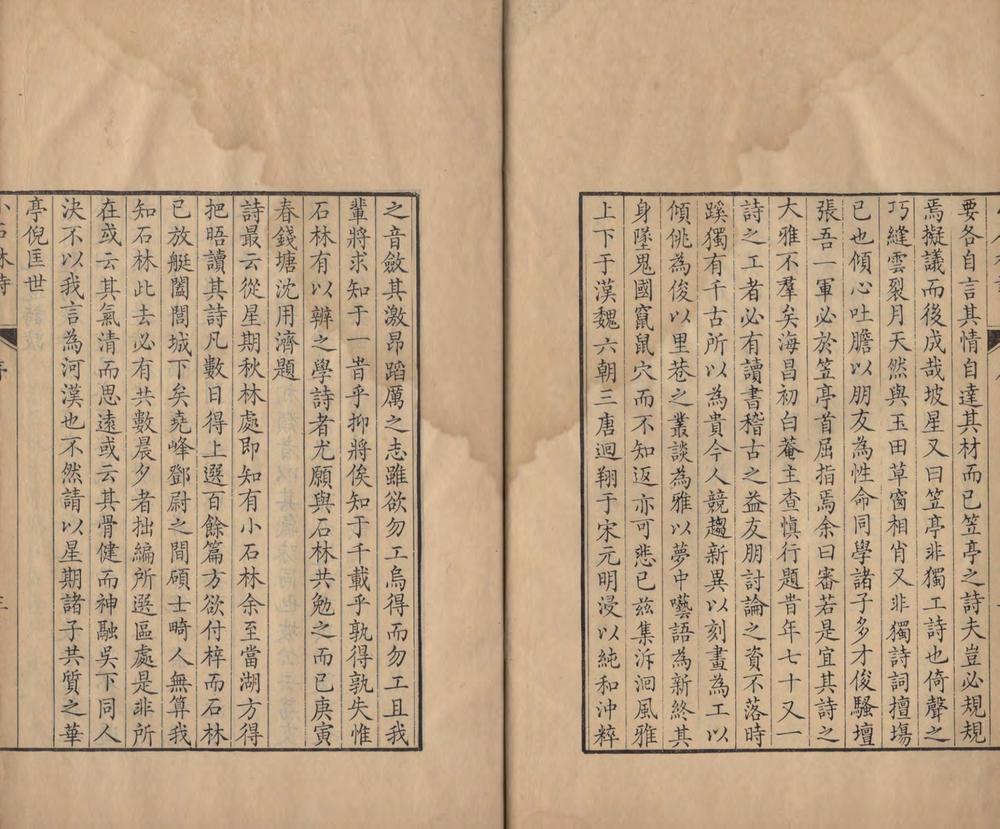 要各自言其情自達其材而已笠亭之詩夫豈必規規
焉擬議而後成哉坡星又曰笠亭非獨工詩也倚聲之
巧縫雲裂月天然與玉田草窗相肖又非獨詩詞擅塲
已也傾心吐膽以朋友為性命同學諸子多才俊騷壇
張吾一軍必於笠亭首屈指焉余曰審若是宜其詩之
大雅不羣矣海昌初白菴主查慎行題昔年七十又一
詩之工者必有讀書稽古之益友朋討論之資不落時
蹊獨有千古所以為貴今人競趨新異以刻畫為工以
傾佻為俊以里巷之叢談為雅以夢中囈語為新終其
身墜鬼國竄鼠穴而不知返亦可悲已茲集泝洄風雅
上下于漢魏六朝三唐迴翔于宋元明浸以純和沖粹
之音斂其激昂蹈厲之志雖欲勿工烏得而勿工且我
輩將求知于一昔乎抑將俟知于千載乎孰得孰失惟
石林有以辨之學詩者尤願與石林共勉之而已庚寅
春錢塘沈用濟題
詩最云從星期秋林處即知有小石林余至當湖方得
把晤讀其詩凡數日得上選百餘篇方欲付梓而石林
已放艇闔閭城下矣堯峰鄧尉之間碩士畸人無算我
知石林此去必有共數晨夕者拙編所選區處是非所
在或云其氣清而思遠或云其骨健而神融吳下同人
決不以我言為河漢也不然請以星期諸子共質之華
亭倪匡世
小石林詩
序
三